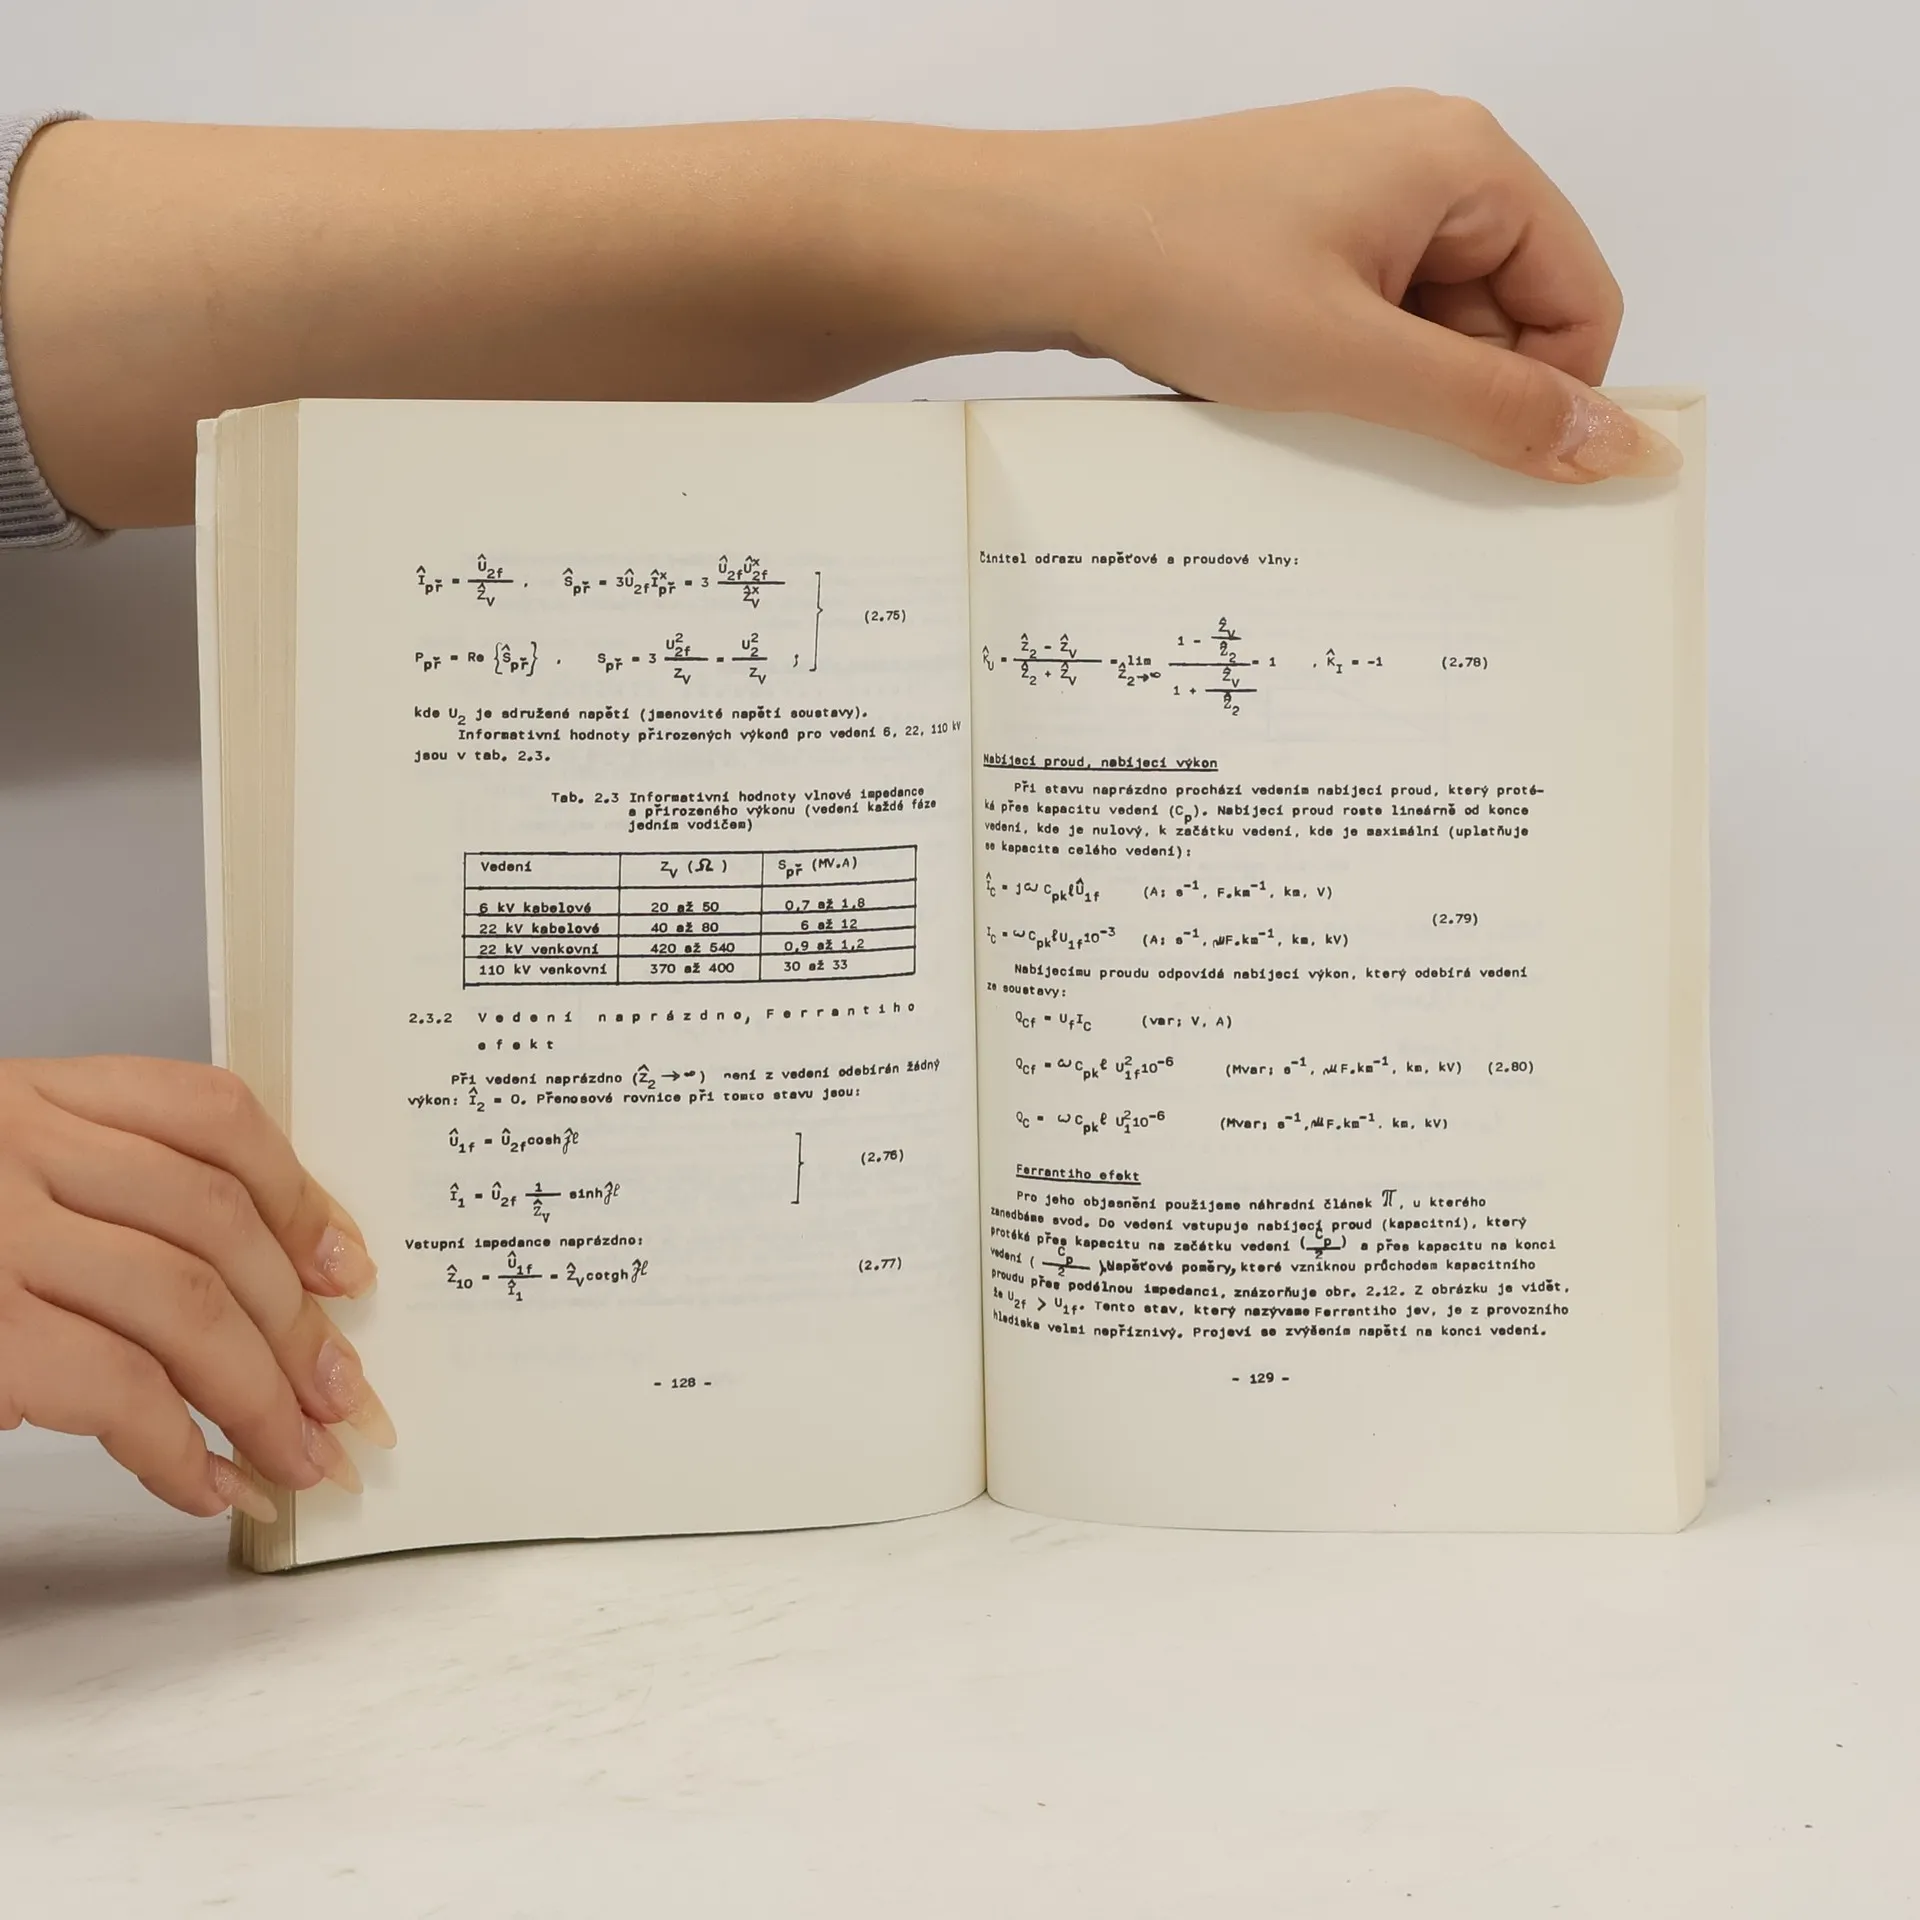 Î_př = Û_2f / Ẑ_V , Ŝ_př = 3Û_2f Î^x_př = 3 Û_2f Û^x_2f / Ẑ^x_V
(2.75)
P_př = Re {Ŝ_př} , S_př = 3 U²_2f / Z_V = U²_2 / Z_V ;
kde U₂ je sdružené napětí (jmenovité napětí soustavy).
Informativní hodnoty přirozených výkonů pro vedení 6, 22, 110 kV
jsou v tab. 2.3.
Tab. 2.3 Informativní hodnoty vlnové impedance
a přirozeného výkonu (vedení každé fáze
jedním vodičem)
Vedení Z_V (Ω) S_př (MV.A)
6 kV kabelové 20 až 50 0,7 až 1,8
22 kV kabelové 40 až 80 6 až 12
22 kV venkovní 420 až 540 0,9 až 1,2
110 kV venkovní 370 až 400 30 až 33
2.3.2 Vedení naprázdno, Ferrantiho
efekt
Při vedení naprázdno (Ẑ₂ → ∞) není z vedení odebírán žádný
výkon: Î₂ = 0. Přenosové rovnice při tomto stavu jsou:
Û_1f = Û_2f cosh γ̂ℓ
(2.76)
Î₁ = Û_2f 1 / Ẑ_V sinh γ̂ℓ
Vstupní impedance naprázdno:
Ẑ₁₀ = Û_1f / Î₁ = Ẑ_V cotgh γ̂ℓ (2.77)
- 128 -
Činitel odrazu napěťové a proudové vlny:
K̂_U = (Ẑ₂ - Ẑ_V) / (Ẑ₂ + Ẑ_V) = lim Ẑ₂→∞ (1 - Ẑ_V / Ẑ₂) / (1 + Ẑ_V / Ẑ₂) = 1 , K̂_I = -1 (2.78)
Nabíjecí proud, nabíjecí výkon
Při stavu naprázdno prochází vedením nabíjecí proud, který proté-
ká přes kapacitu vedení (C_p). Nabíjecí proud roste lineárně od konce
vedení, kde je nulový, k začátku vedení, kde je maximální (uplatňuje
se kapacita celého vedení):
Î_C = jω C_pk ℓ Û_1f (A; s⁻¹, F.km⁻¹, km, V)
(2.79)
I_C = ω C_pk ℓ U_1f 10⁻³ (A; s⁻¹, μF.km⁻¹, km, kV)
Nabíjecímu proudu odpovídá nabíjecí výkon, který odebírá vedení
ze soustavy:
Q_Cf = U_f I_C (var; V, A)
Q_Cf = ω C_pk ℓ U²_1f 10⁻⁶ (Mvar; s⁻¹, μF.km⁻¹, km, kV) (2.80)
Q_C = ω C_pk ℓ U²_1 10⁻⁶ (Mvar; s⁻¹, μF.km⁻¹, km, kV)
Ferrantiho efekt
Pro jeho objasnění použijeme náhradní článek π, u kterého
zanedbáme svod. Do vedení vstupuje nabíjecí proud (kapacitní), který
protéká přes kapacitu na začátku vedení (C_p / 2) a přes kapacitu na konci
vedení (C_p / 2). Napěťové poměry, které vzniknou průchodem kapacitního
proudu přes podélnou impedanci, znázorňuje obr. 2.12. Z obrázku je vidět,
že U_2f > U_1f. Tento stav, který nazýváme Ferrantiho jev, je z provozního
hlediska velmi nepříznivý. Projeví se zvýšením napětí na konci vedení.
- 129 -